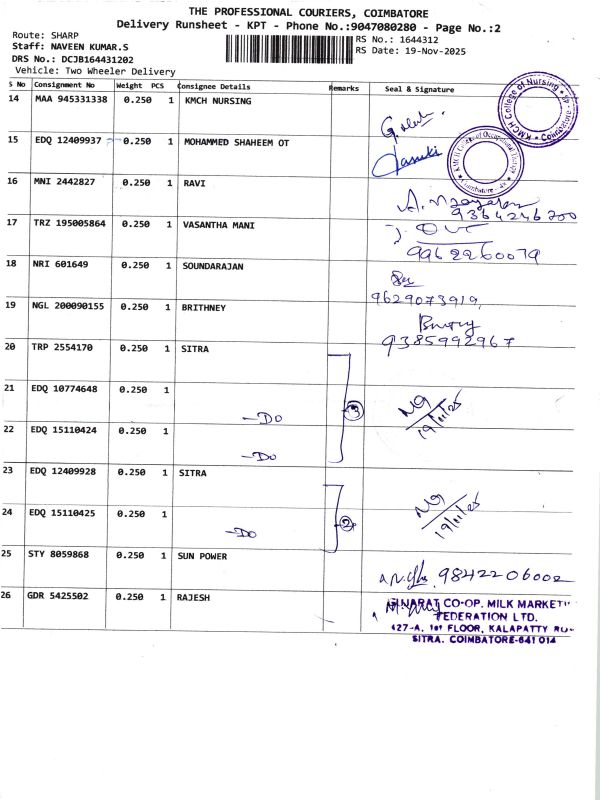 THE PROFESSIONAL COURIERS, COIMBATORE
Delivery Runsheet - KPT - Phone No.:9047080280 - Page No.:2
Route: SHARP
RS No.: 1644312
Staff: NAVEEN KUMAR.S
RS Date: 19-Nov-2025
DRS No.: DCJB164431202
Vehicle: Two Wheeler Delivery
S No Consignment No Weight PCS Consignee Details Remarks Seal & Signature
14 MAA 945331338 0.250 1 KMCH NURSING
KMCH College of Nursing Coimbatore
15 EDQ 12409937 0.250 1 MOHAMMED SHAHEEM OT
KMCH College of Occupational Therapy Coimbatore
16 MNI 2442827 0.250 1 RAVI
9364246700
17 TRZ 195005864 0.250 1 VASANTHA MANI
9962260079
18 NRI 601649 0.250 1 SOUNDARAJAN
9629073919
19 NGL 200090155 0.250 1 BRITHNEY
9385992967
20 TRP 2554170 0.250 1 SITRA
21 EDQ 10774648 0.250 1
-Do 3
19/11/25
22 EDQ 15110424 0.250 1
-Do
23 EDQ 12409928 0.250 1 SITRA
24 EDQ 15110425 0.250 1
-Do 2
19/11/25
25 STY 8059868 0.250 1 SUN POWER
9842206002
26 GDR 5425502 0.250 1 RAJESH
CO-OP. MILK MARKETI
FEDERATION LTD.
427-A, 1st FLOOR, KALAPATTY RO
SITRA. COIMBATORE-641 014